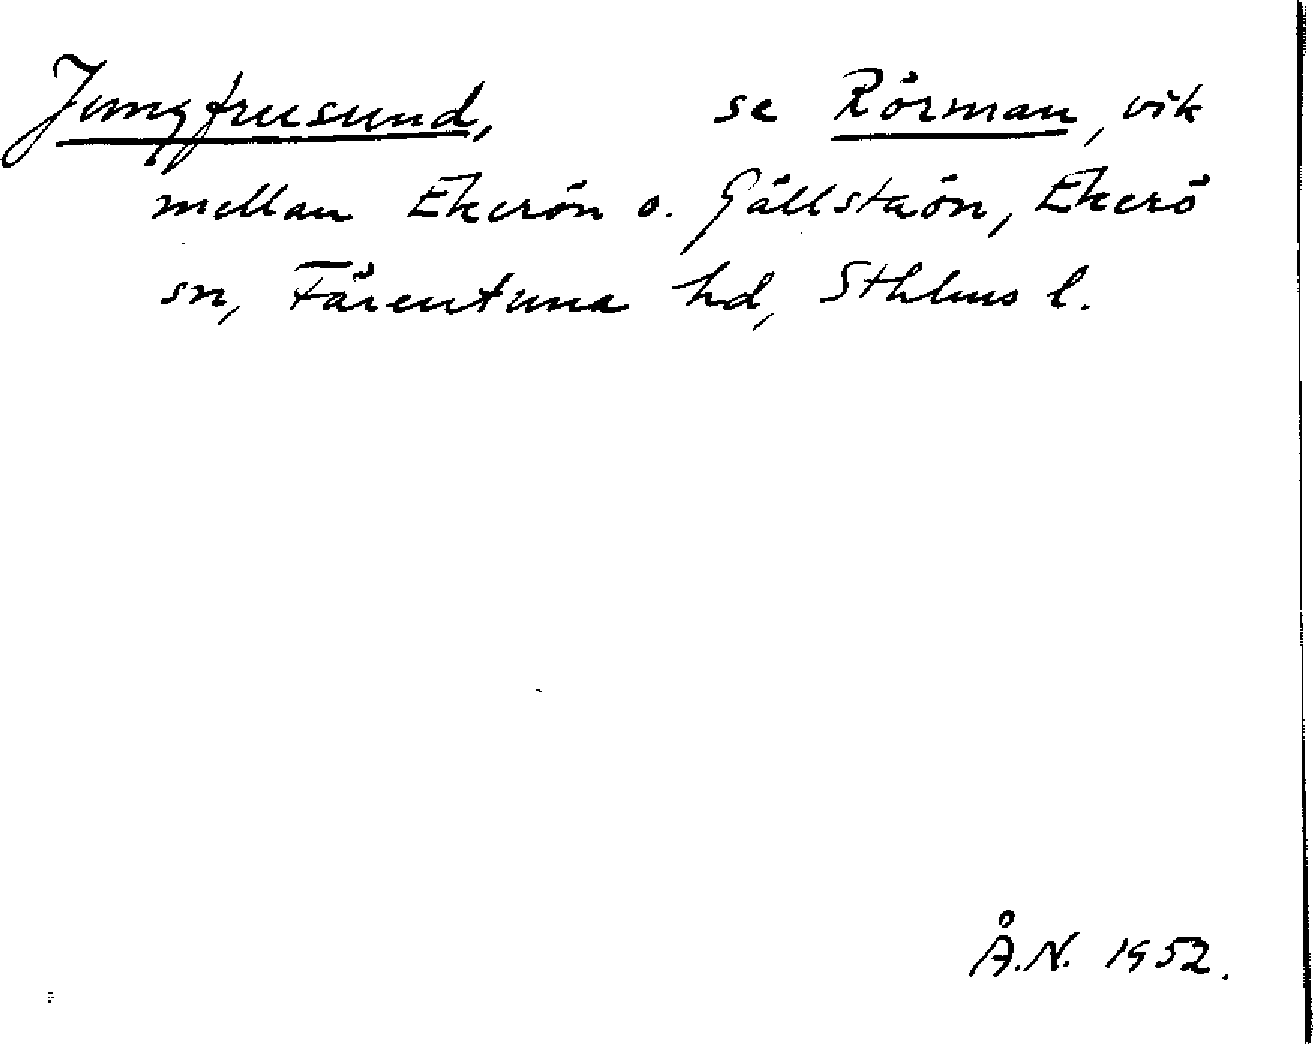 Jungfrusund, se Rörman, vik
mellan Ekerön o. Gällstaön, Ekerö
sn, Färentuna hd, Sthlms l.
Å.N. 1952.